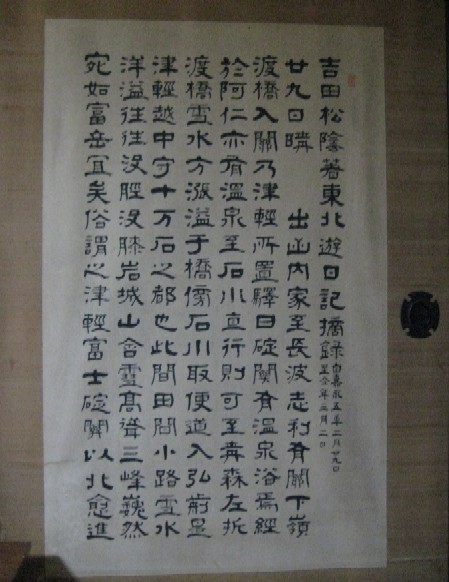 吉田松陰著東北遊日記摘録 自嘉永五年二月廿九日
至仝年三月二日
廿九日晴 出 内家至長波志利有關下嶺
渡橋入關乃津輕所置驛曰碇關有温泉浴焉經
於阿仁亦有温泉至石川直行則可至青森左折
渡橋雪水方漲溢于橋 石川取便道入弘前是
津輕越中守十万石之都也此間田間小路雪水
洋溢往往没脛没膝岩城山含雪高聳三峰巍然
宛如富岳宜矣俗謂之津輕富士碇關以北愈進